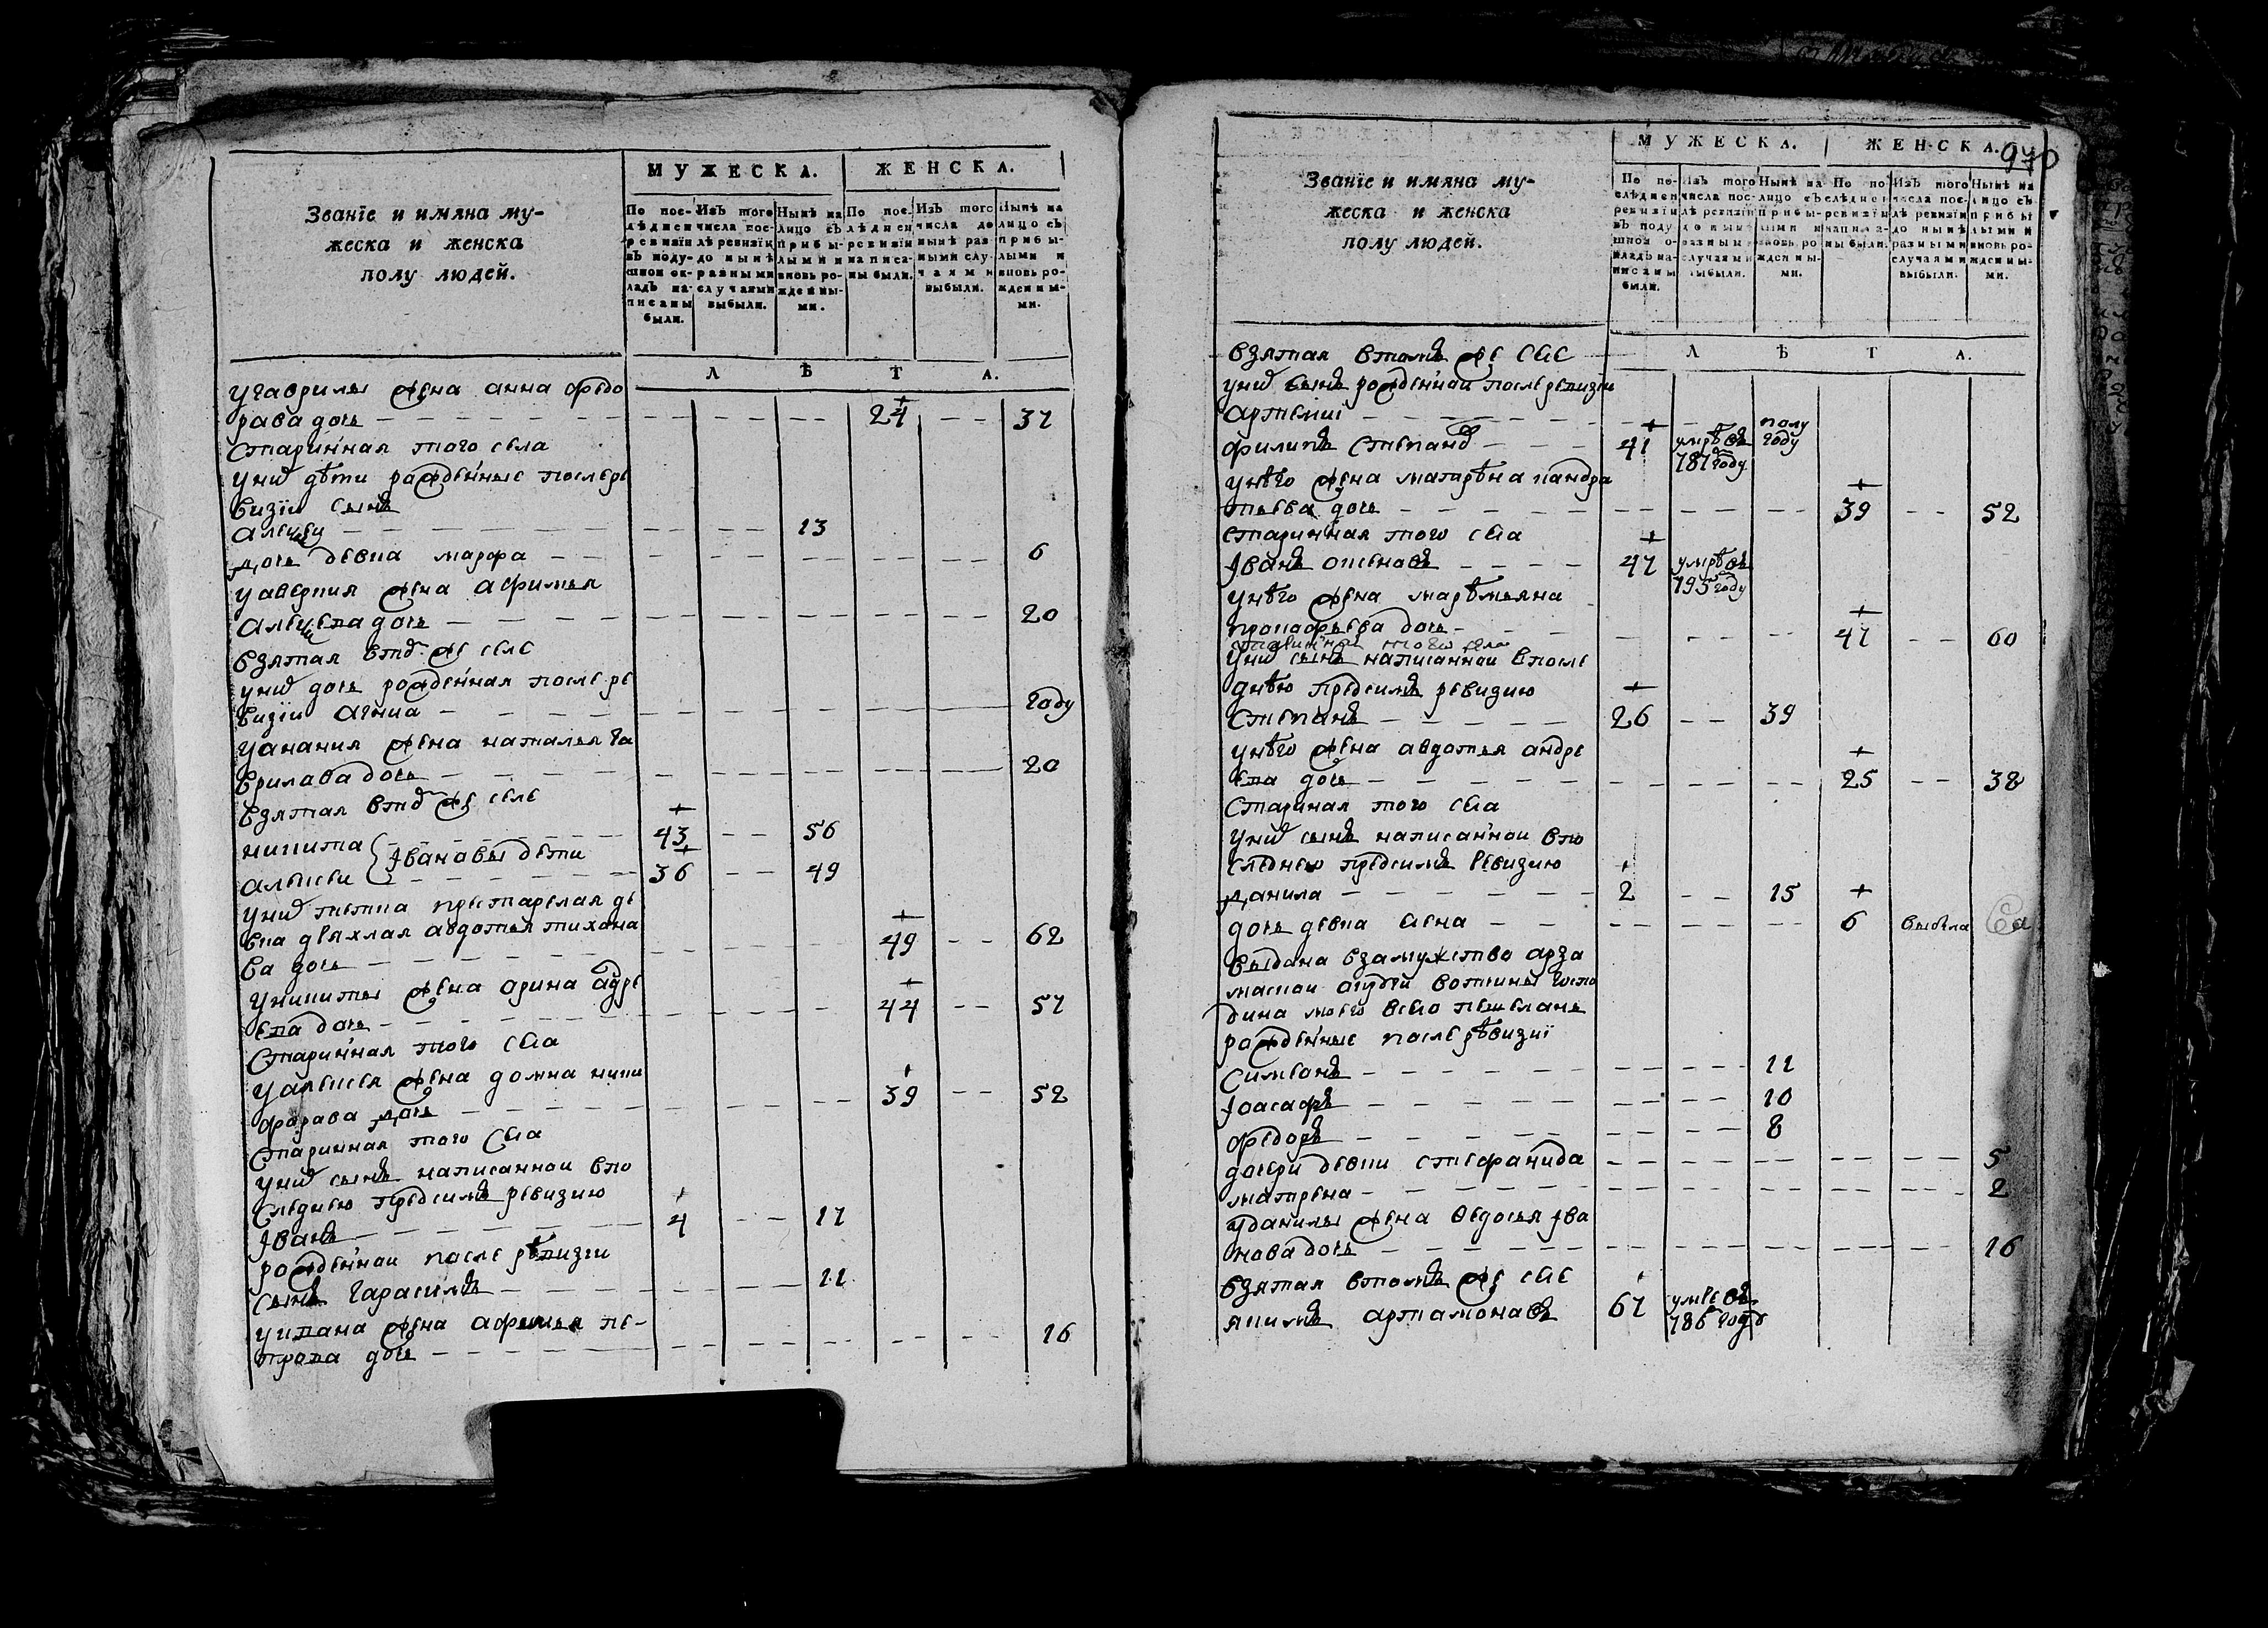 Званїе и имяна му-
жеска и женска
полу людей.
МУЖЕСКА.
ЖЕНСКА.
По пос-
лѣдней
ревизїи
въ поду-
шной ок-
ладъ на-
писаны
были.
Изъ того
числа пос-
лѣ ревизїи
до нынѣ
разными
случаями
выбыли.
Нынѣ на
лицо съ
прибы-
лыми и
вновь ро-
жденны-
ми.
По пос-
лѣдней
ревизїи
написа-
ны были.
Изъ того
числа до
нынѣ раз-
ными слу-
чаями
выбыли.
Нынѣ на
лицо съ
прибы-
лыми и
вновь ро-
жденны-
ми.
Л Ѣ Т А.
угаврилы жена анна федо
рава дочь 24 37
старинная того села
унихъ дѣти рожденные послере
визїи сынъ
алексеи 13
дочь девка марфа 6
уаверкия жена афимья
алексева дочь 20
взятая втомъ же селе
унихъ дочь рожденная после ре
визїи году
уанания жена наталья га
врилава дочь 20
взятая втомъ же селе
никита 43 56
Ивановы дети
алексеи 36 49
унихъ тетка престарелая де
вка дряхлая авдотья тихона
ва дочь 49 62
уникиты жена арина адре
евна дочь 44 57
старинная того села
уалексея жена домна ники
фарава дочь 39 52
старинная того села
унихъ сынъ написаннои впо
следнею предсимъ ревизию
Иванъ 4 17
рожденнои после ревизїи
сынъ гарасимъ 11
жена афимья пе-
трова дочь 16
970
Званїе и имяна му-
жеска и женска
полу людей.
МУЖЕСКА.
ЖЕНСКА.
По по-
слѣдней
ревизїи
въ поду
шной о-
кладъ на-
писаны
были.
Изъ того
числа пос-
лѣ ревизїи
до нынѣ
разными
случаями
выбыли.
Нынѣ на
лицо съ
прибы-
лыми и
вновь ро
жденны-
ми.
По по
слѣдней
ревизїи
написа-
ны были.
Изъ того
числа пос-
лѣ ревизїи
до нынѣ
разными
случаями
выбыли.
Нынѣ на
лицо съ
прибы
лыми и
вновь ро-
жденны-
ми.
Л Ѣ Т А.
взятая втомъ же селе
унихъ сынъ рожденнои послеревизїи
артемїи полу году
филипъ степанъ 41 умрѣ въ 787 году
унѣго жена матрѣна кандра
тьева дочь 39 52
старинная того села
Иванъ 47 умрѣ въ 795 году
унѣго жена марѣмьяна
прокофьева дочь 47 60
старинная того села
унихъ сынъ написаннои впосле
днѣю предсимъ ревизию
степанъ 26 39
унѣго жена авдотья андре
ева дочь 25 38
стариная того села
унихъ сынъ написаннои впо
следнею предсимъ ревизию
данила 2 15
дочь девка елена 6 выбыла
выдана взамужство арза
маскои округи вотчины госпо
дина моего село
рожденные после рѣвизиї
симеонъ 11
Иоасафъ 10
федоръ 8
дочери девки стефанида 5
матрена 2
уданилы жена ѳедосья Ива
нова дочь 16
взятая втомъ же селе
якимъ артамонавъ 67 умре въ 786 году